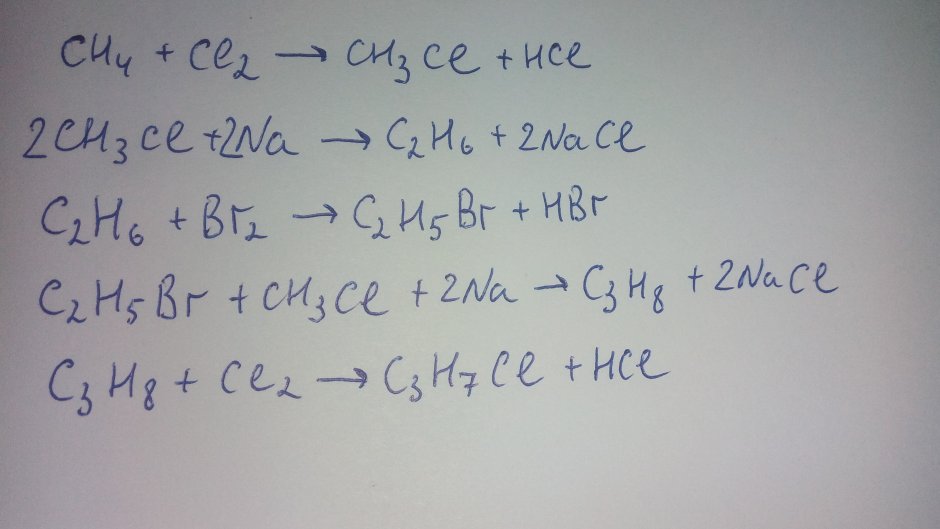 CH₄ + Cl₂ → CH₃Cl + HCl
2CH₃Cl + 2Na → C₂H₆ + 2NaCl
C₂H₆ + Br₂ → C₂H₅Br + HBr
C₂H₅Br + CH₃Cl + 2Na → C₃H₈ + 2NaCl
C₃H₈ + Cl₂ → C₃H₇Cl + HCl